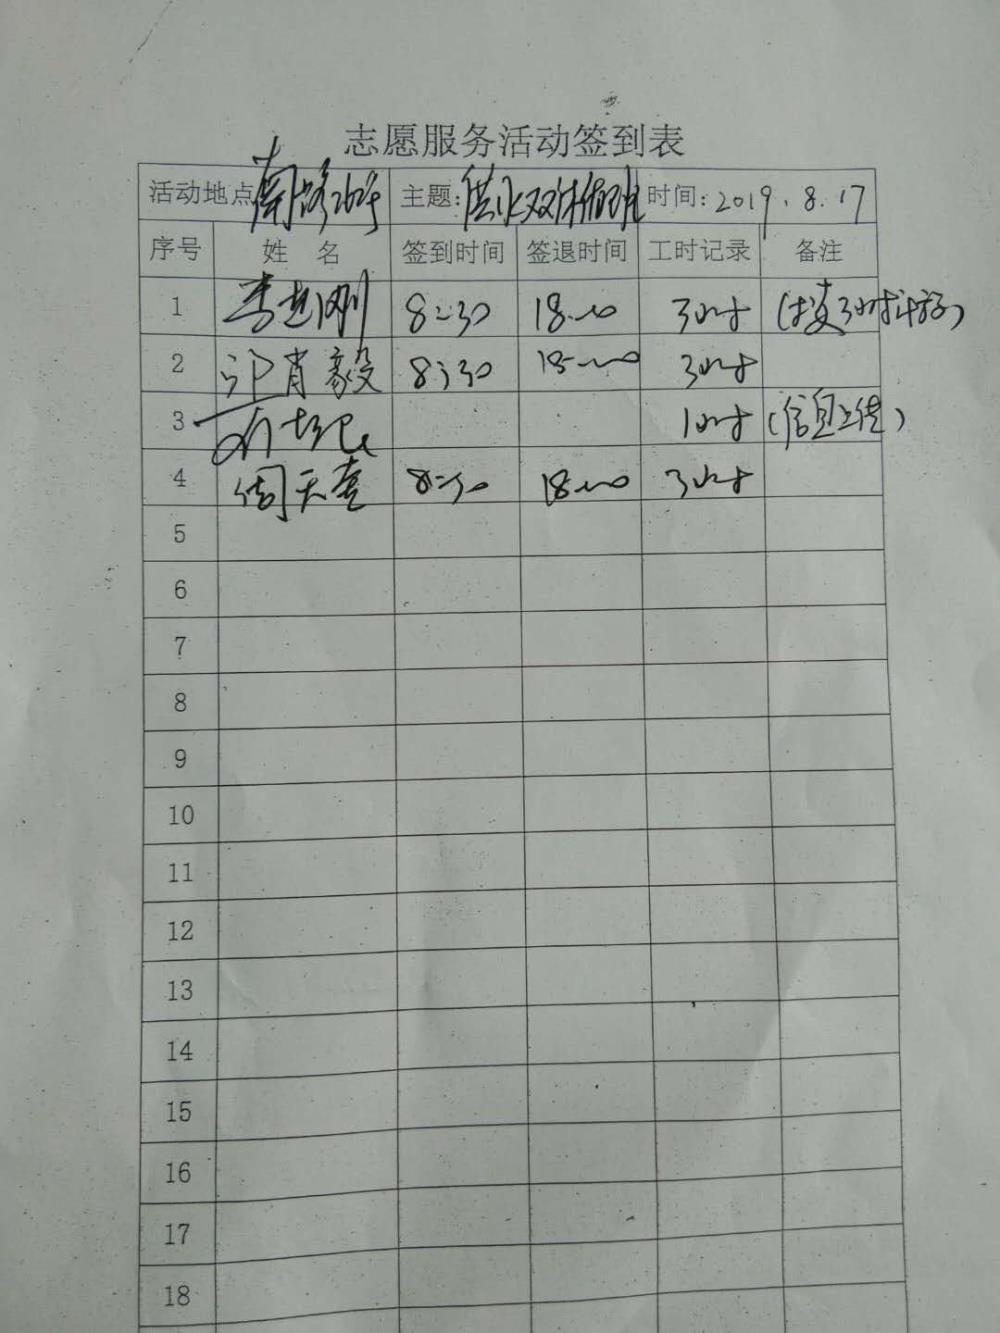 志愿服务活动签到表
活动地点 主题: 时间: 2019.8.17
序号 姓 名 签到时间 签退时间 工时记录 备注
1 8:30 18:00 3小时
2 肖毅 8:30 18:00 3小时
3 1小时 (信息上传)
4 周天 8:30 18:00 3小时
5
6
7
8
9
10
11
12
13
14
15
16
17
18